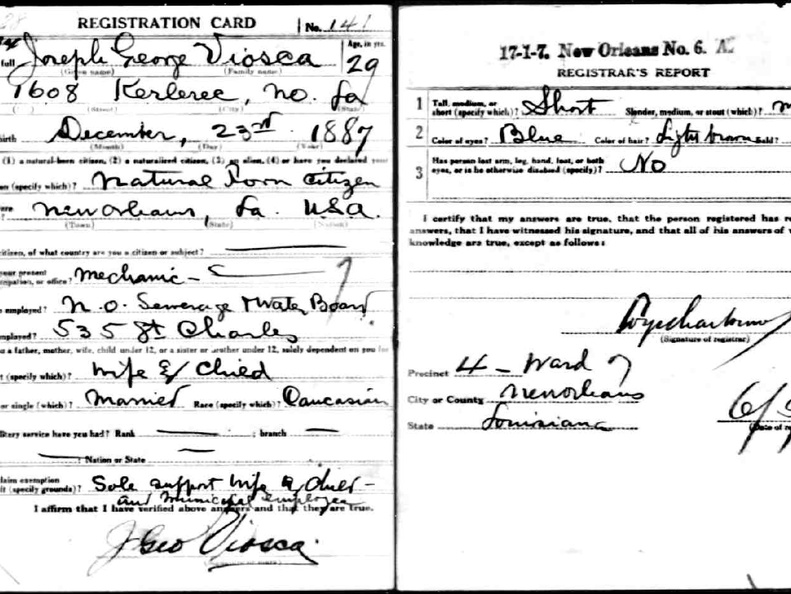 REGISTRATION CARD No. 141
full Joseph George Viosca Age, in yrs. 29
(Given name) (Family name)
1608 Kerlerec, N.O. La
(Street) (City) (State)
birth December, 23rd 1887
(Month) (Day) (Year)
(1) a natural-born citizen, (2) a naturalized citizen, (3) an alien, (4) or have you declared your
(specify which)? Natural Born Citizen
New Orleans, La. U.S.A.
(Town) (State) (Nation)
citizen, of what country are you a citizen or subject?
your present
occupation, or office? Mechanic
employed? N.O. Sewerage & Water Board
employed? 535 St Charles
a father, mother, wife, child under 12, or a sister or brother under 12, solely dependent on you for
(specify which)? Wife & Child
or single (which)? Married Race (specify which)? Caucasian
military service have you had? Rank ; branch
Nation or State
claim exemption
(specify grounds)? Sole support wife & child
and Municipal employee
I affirm that I have verified above answers and that they are true.
J Geo Viosca.
17-1-7. New Orleans No. 6. A.
REGISTRAR'S REPORT
1 Tall, medium, or
short (specify which)? Short Slender, medium, or stout (which)?
2 Color of eyes? Blue Color of hair? Light brown Bald?
3 Has person lost arm, leg, hand, foot, or both
eyes, or is he otherwise disabled (specify)? No
I certify that my answers are true, that the person registered has
answers, that I have witnessed his signature, and that all of his answers of
knowledge are true, except as follows:
(Signature of registrar)
Precinct 4 - Ward 7
City or County New Orleans
State Louisiana
(Date of